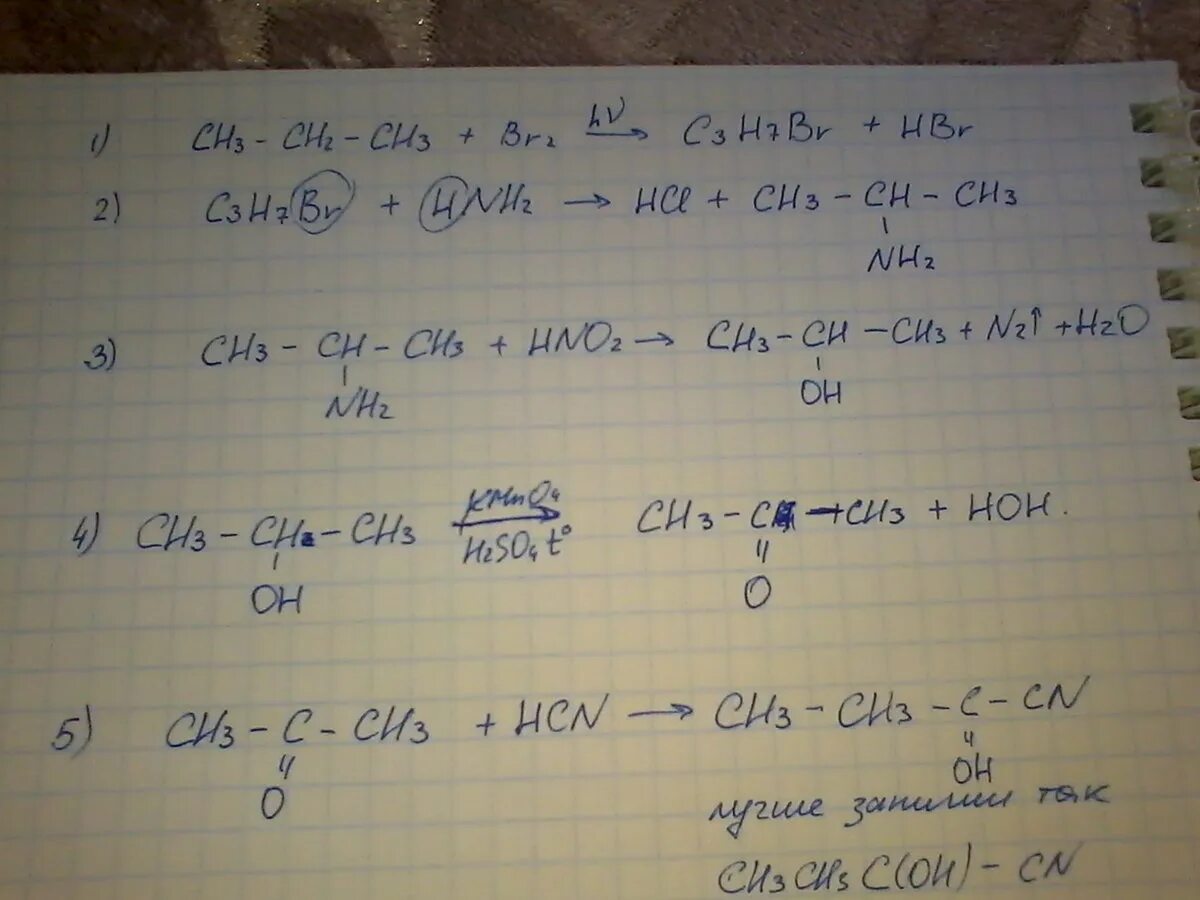 1) CH3 - CH2 - CH3 + Br2 hν → C3H7Br + HBr
2) C3H7Br + HNH2 → HCl + CH3 - CH - CH3
NH2
3) CH3 - CH - CH3 + HNO2 → CH3 - CH - CH3 + N2↑ + H2O
NH2 OH
KMnO4
4) CH3 - CH - CH3 → CH3 - C - CH3 + HOH.
H2SO4 t°
OH O
5) CH3 - C - CH3 + HCN → CH3 - CH3 - C - CN
O OH
лучше запиши так
CH3CH3C(OH) - CN